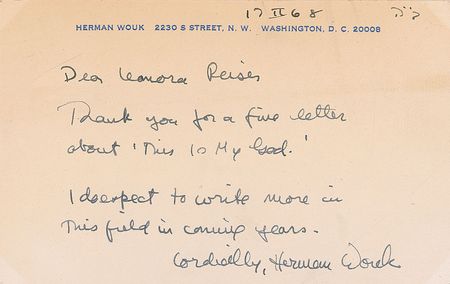 17 II 68 ב"ה
HERMAN WOUK 2230 S STREET, N. W. WASHINGTON, D. C. 20008
Dear Leonora Reiser
Thank you for a fine letter
about 'This Is My God.'
I do expect to write more in
this field in coming years.
Cordially, Herman Wouk